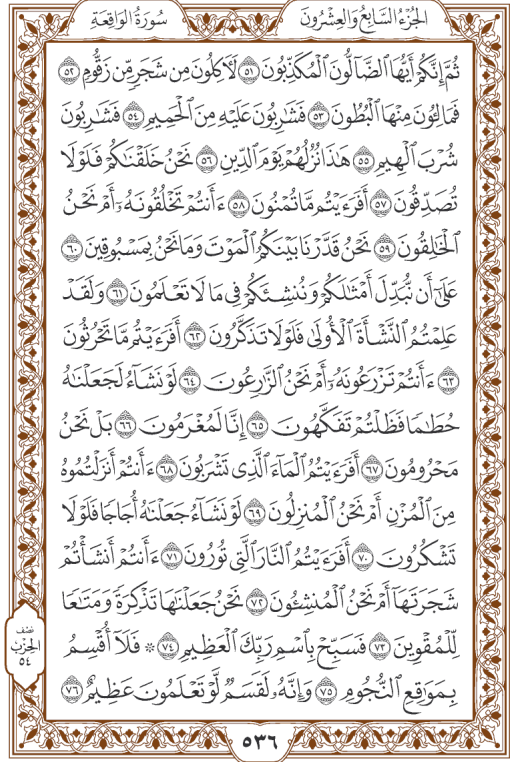 الجُزْءُ السَّابِعُ وَالعِشْرُونَ
سُورَةُ الوَاقِعَةِ
ثُمَّ إِنَّكُمْ أَيُّهَا ٱلضَّآلُّونَ ٱلْمُكَذِّبُونَ ٥١ لَأٓكِلُونَ مِن شَجَرٖ مِّن زَقُّومٖ ٥٢
فَمَالِـُٔونَ مِنْهَا ٱلْبُطُونَ ٥٣ فَشَٰرِبُونَ عَلَيْهِ مِنَ ٱلْحَمِيمِ ٥٤ فَشَٰرِبُونَ
شُرْبَ ٱلْهِيمِ ٥٥ هَٰذَا نُزُلُهُمْ يَوْمَ ٱلدِّينِ ٥٦ نَحْنُ خَلَقْنَٰكُمْ فَلَوْلَا
تُصَدِّقُونَ ٥٧ أَفَرَءَيْتُم مَّا تُمْنُونَ ٥٨ ءَأَنتُمْ تَخْلُقُونَهُۥٓ أَمْ نَحْنُ
ٱلْخَٰلِقُونَ ٥٩ نَحْنُ قَدَّرْنَا بَيْنَكُمُ ٱلْمَوْتَ وَمَا نَحْنُ بِمَسْبُوقِينَ ٦٠
عَلَىٰٓ أَن نُّبَدِّلَ أَمْثَٰلَكُمْ وَنُنشِئَكُمْ فِى مَا لَا تَعْلَمُونَ ٦١ وَلَقَدْ
عَلِمْتُمُ ٱلنَّشْأَةَ ٱلْأُولَىٰ فَلَوْلَا تَذَكَّرُونَ ٦٢ أَفَرَءَيْتُم مَّا تَحْرُثُونَ
٦٣ ءَأَنتُمْ تَزْرَعُونَهُۥٓ أَمْ نَحْنُ ٱلزَّٰرِعُونَ ٦٤ لَوْ نَشَآءُ لَجَعَلْنَٰهُ
حُطَٰمٗا فَظَلْتُمْ تَفَكَّهُونَ ٦٥ إِنَّا لَمُغْرَمُونَ ٦٦ بَلْ نَحْنُ
مَحْرُومُونَ ٦٧ أَفَرَءَيْتُمُ ٱلْمَآءَ ٱلَّذِى تَشْرَبُونَ ٦٨ ءَأَنتُمْ أَنزَلْتُمُوهُ
مِنَ ٱلْمُزْنِ أَمْ نَحْنُ ٱلْمُنزِلُونَ ٦٩ لَوْ نَشَآءُ جَعَلْنَٰهُ أُجَاجٗا فَلَوْلَا
تَشْكُرُونَ ٧٠ أَفَرَءَيْتُمُ ٱلنَّارَ ٱلَّتِى تُورُونَ ٧١ ءَأَنتُمْ أَنشَأْتُمْ
شَجَرَتَهَآ أَمْ نَحْنُ ٱلْمُنشِـُٔونَ ٧٢ نَحْنُ جَعَلْنَٰهَا تَذْكِرَةٗ وَمَتَٰعٗا
لِّلْمُقْوِينَ ٧٣ فَسَبِّحْ بِٱسْمِ رَبِّكَ ٱلْعَظِيمِ ٧٤ ۞ فَلَآ أُقْسِمُ
بِمَوَٰقِعِ ٱلنُّجُومِ ٧٥ وَإِنَّهُۥ لَقَسَمٞ لَّوْ تَعْلَمُونَ عَظِيمٌ ٧٦
نصف
الحزب
٥٤
٥٣٦